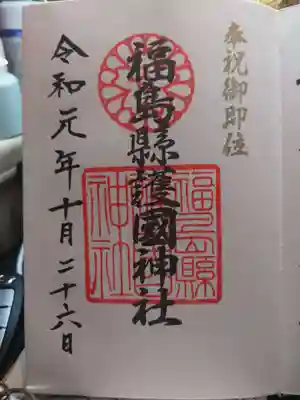 奉祝御即位
福島縣護國神社
福島縣護國神社
令和元年十月二十六日